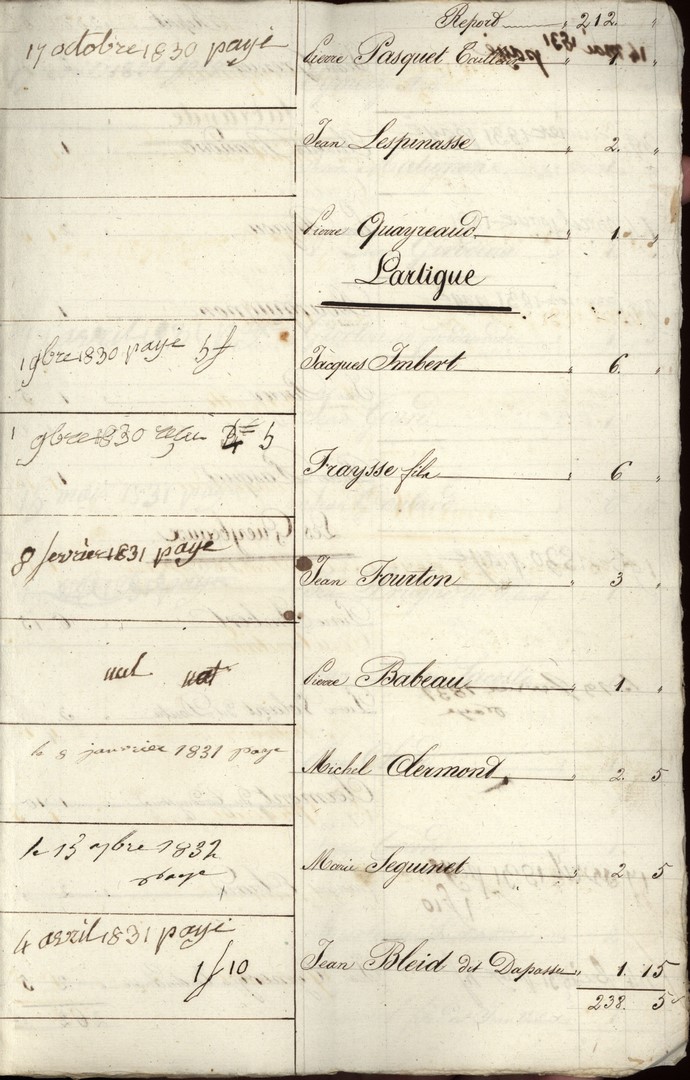 Report " 212. "
17 octobre 1830 payé
Pierre Pasquet Tailleur 1. "
16 mai 1831 payé
Jean Lespinasse " 2. "
Pierre Quayreaud " 1. "
Lartigue
1 9bre 1830 payé 5f
Jacques Imbert " 6. "
1 9bre 1830 reçu 5
Fraysse fils " 6 "
8 fevrier 1831 payé
Jean Fourton " 3 "
nul nul
Pierre Babeau " 1. "
le 8 janvier 1831 paye
Michel Clermont " 2. 5
le 13 9bre 1832
paye
Marie Seguinet " 2 5
4 avril 1831 payé
1f 10
Jean Bleid dit " 1. 15
238. 5